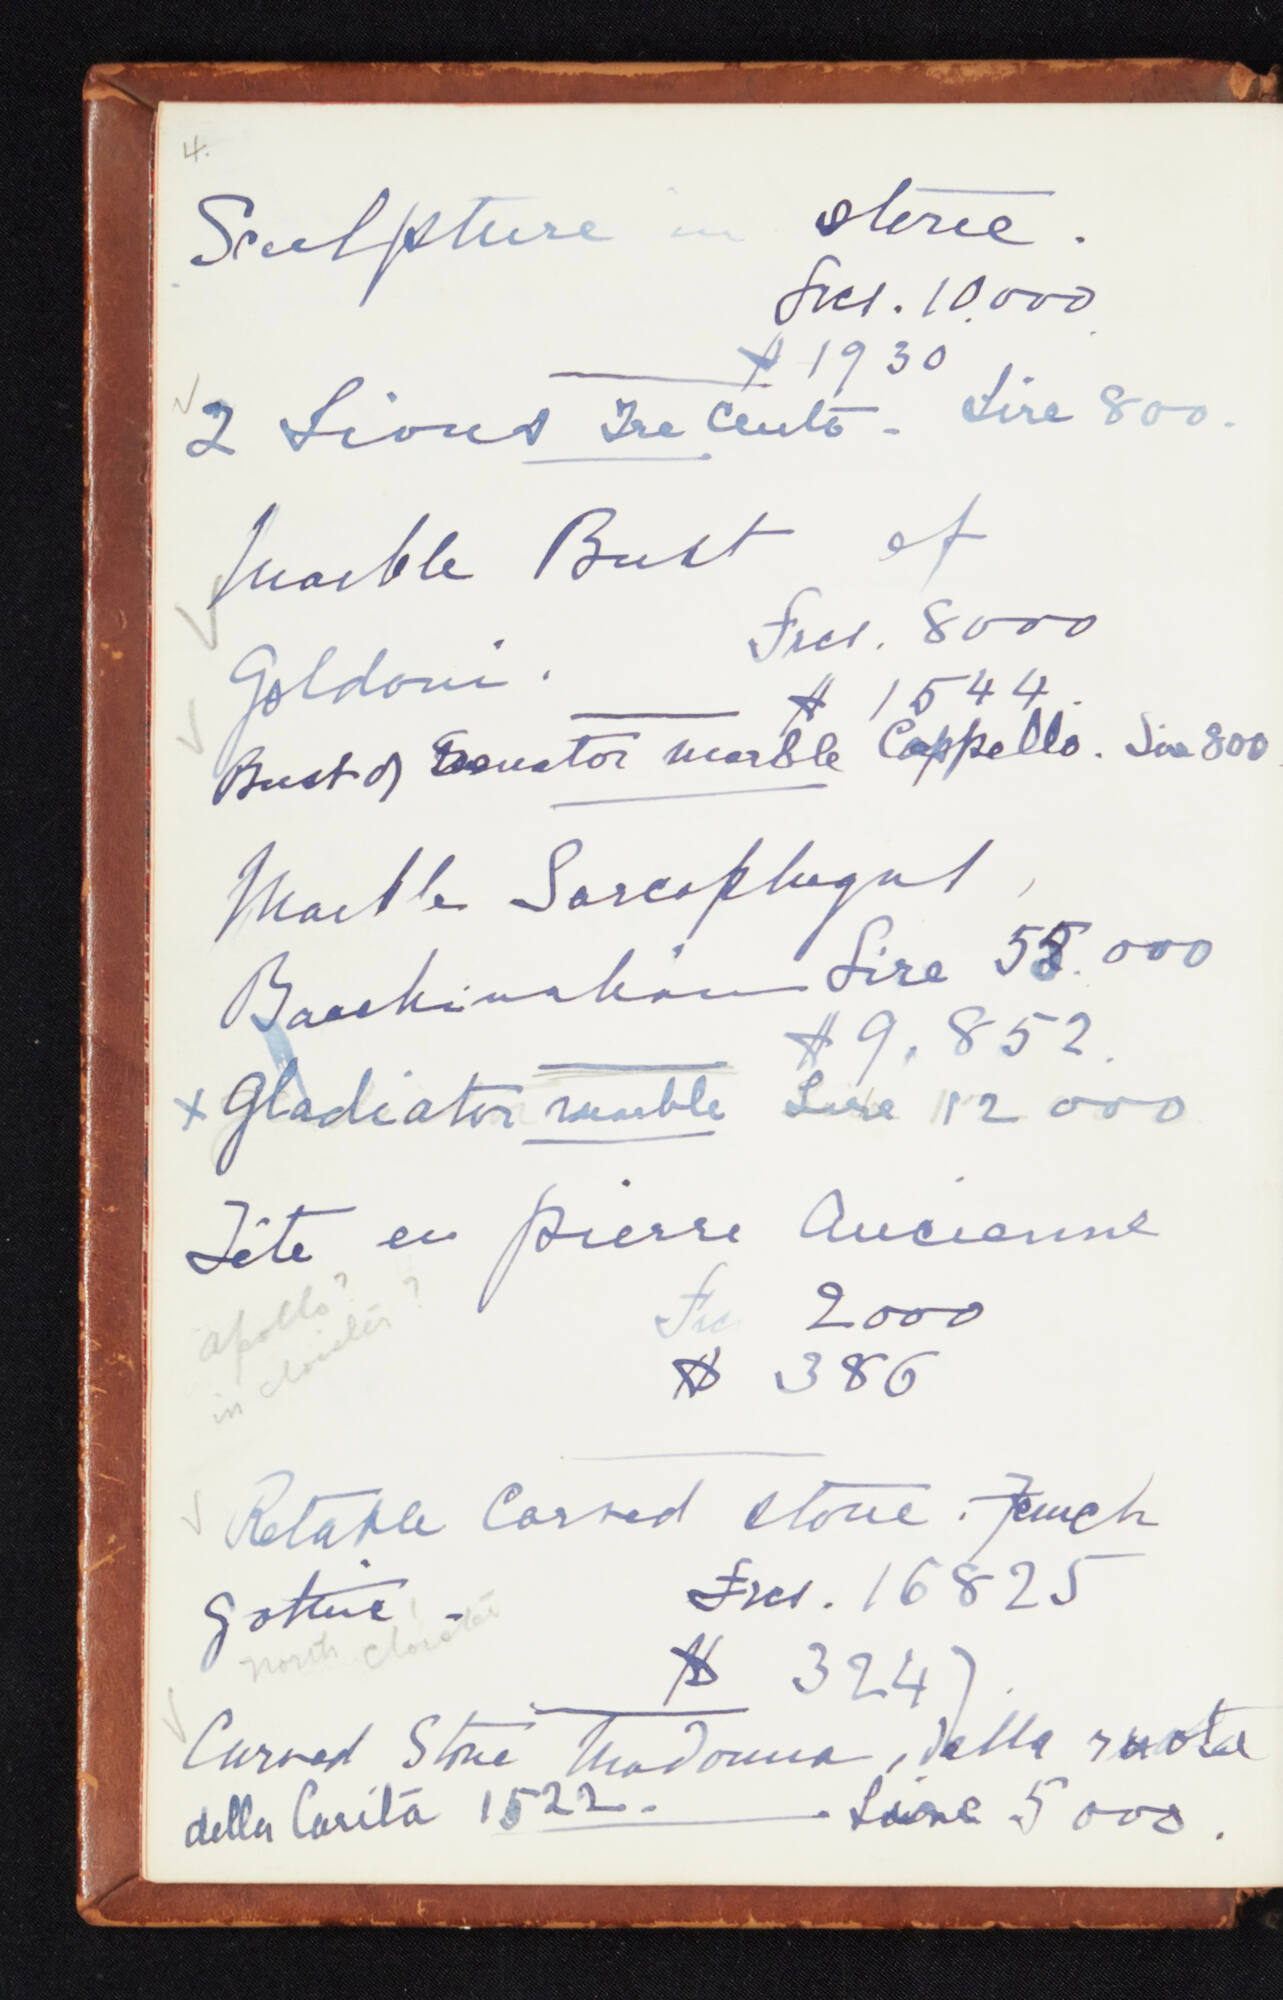 4.
Sculpture in stone.
Frcs. 10.000
$ 1930
2 Lions Tre Cento - Lire 800.
Marble Bust of
Goldoni. Frcs. 8000
$ 1544.
Bust of Senator marble Cappello. Lire 800
Marble Sarcophagus,
Lire 55.000
$ 9,852.
x Gladiator marble Lire 12 000
Tête en pierre Ancienne
Apollo?
in cloister?
Frcs 2000
$ 386
Retable Carved stone. French
Gothic - Frcs. 16825
north cloister
$ 3247.
Carved Stone Madonna, della ruota
della Carità 1522. Lire 5000.